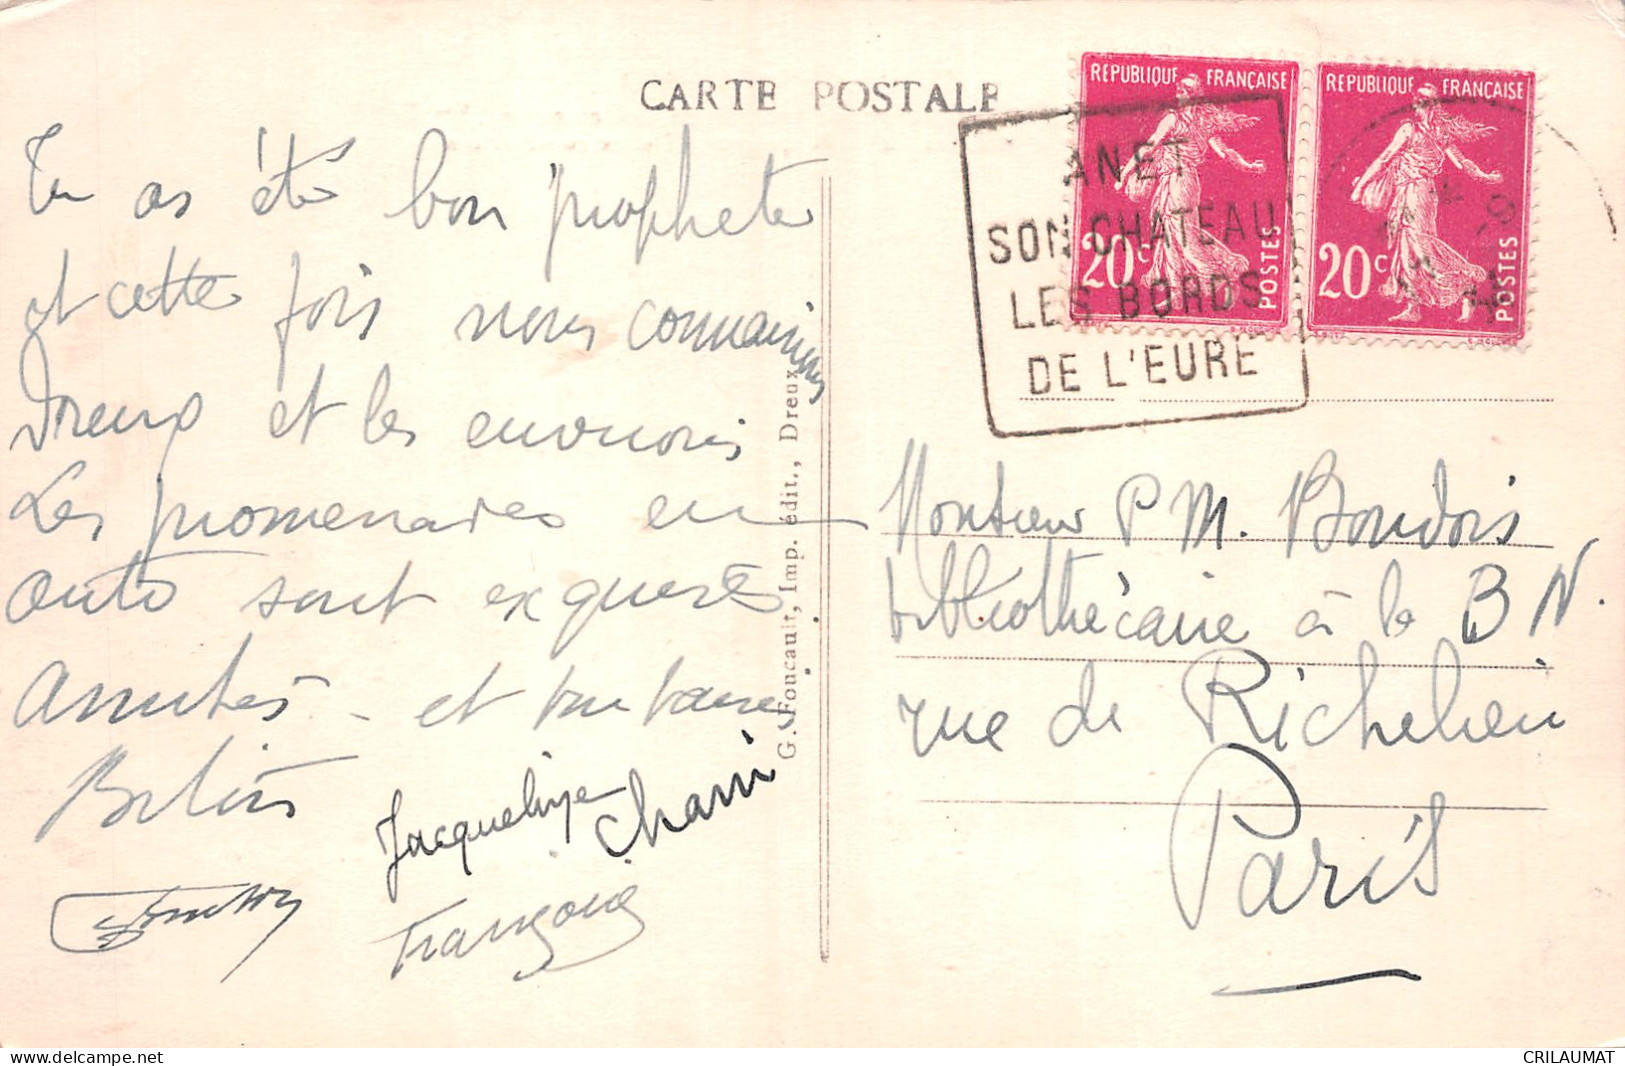 CARTE POSTALE
Tu as été bon prophète
et cette fois nous connaissons
Dreux et les environs
Les promenades en
auto sont exquises
Amitiés - et
Jacqueline
Françoise
G. Foucault, Imp. édit., Dreux
REPUBLIQUE FRANÇAISE
20c
POSTES
REPUBLIQUE FRANÇAISE
20c
POSTES
ANET
SON CHATEAU
LES BORDS
DE L'EURE
Monsieur P M. Bondois
bibliothécaire à la B N.
rue de Richelieu
Paris
CRILAUMAT